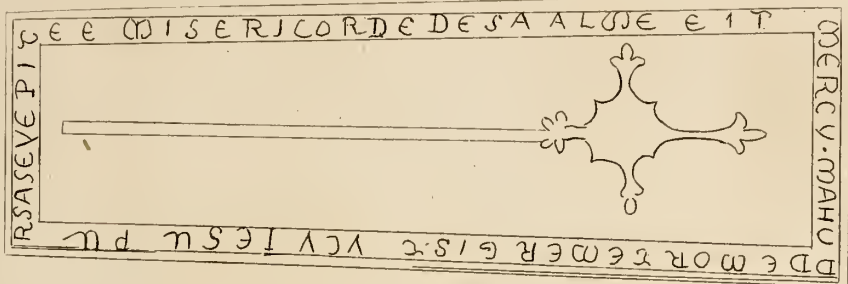 EE MISERICORDE DE SA ALME EIT
MERCY·MAHU
DDE MORTEMER GIS·T YCY IESU PU
R SA SEVE PIT